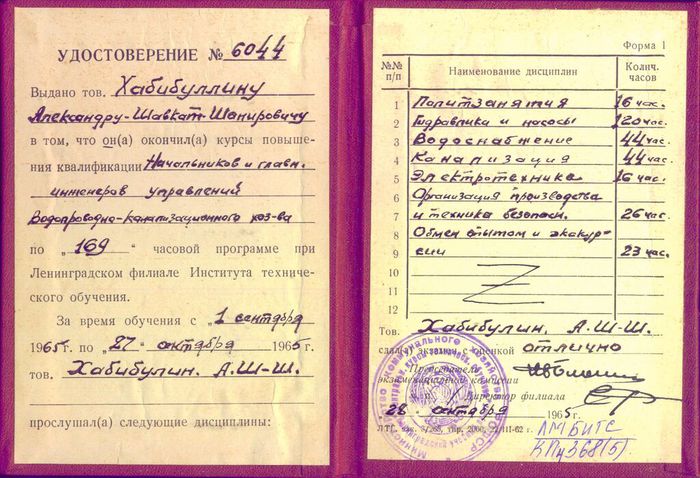 УДОСТОВЕРЕНИЕ № 6044
Выдано тов. Хабибуллину
Александру-Шавкат-Шакировичу
в том, что он(а) окончил(а) курсы повыше-
ния квалификации Начальников и главн.
инженеров управлений
Водопроводно-канализационного хоз-ва
по „ 169 “ часовой программе при
Ленинградском филиале Института техниче-
ского обучения.
За время обучения с „ 1 сентября
1965 г. по „ 27 “ октября 1965 г.
тов. Хабибулин. А.Ш-Ш.
прослушал(а) следующие дисциплины:
Форма 1
№№ п/п Наименование дисциплин Колич. часов
1 Политзанятия 16 час.
2 Гидравлика и насосы 120 час.
3 Водоснабжение 44 час.
4 Канализация 44 час.
5 Электротехника 16 час.
6 Организация производства
7 и техника безопасн. 26 час.
8 Обмен опытом и экскур-
9 сии 23 час.
10
11
12
Тов. Хабибулин. А.Ш-Ш.
сдал(а) экзамен с оценкой отлично
Председатель
экзаменационной комиссии
Директор филиала
28 октября 1965 г.
ЛТГ, зак. тир. 2000, 62 г.
ЛМБИТС
КПч 368(5)